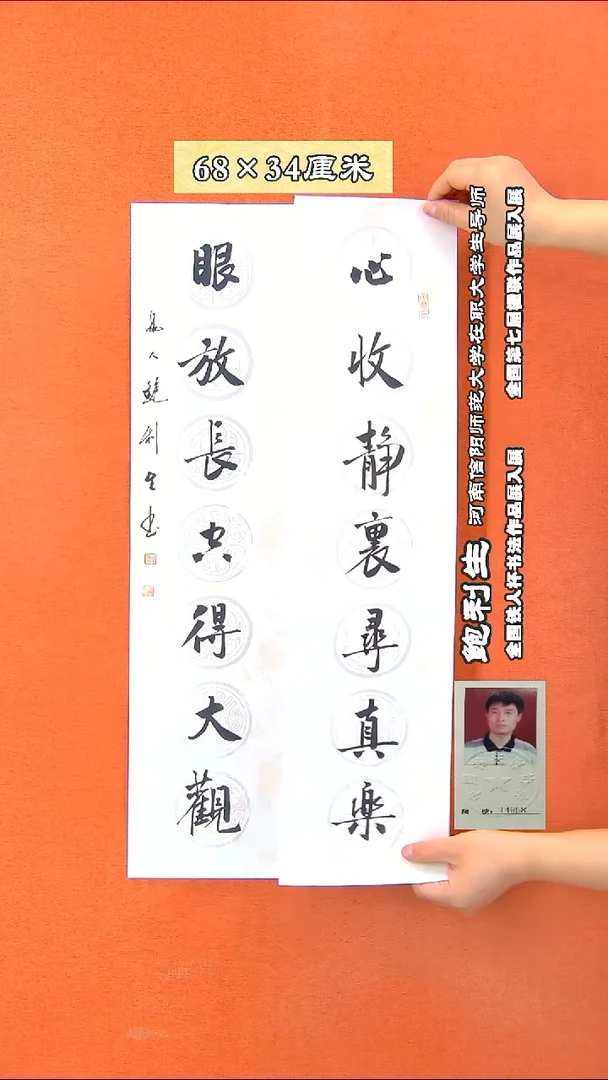 68×34厘米
心收静裏尋真楽
眼放長空得大觀
息人鲍利生书
鲍利生 河南信阳师范大学在职大学生导师
全国铁人杯书法作品展入展 全国第七届楹联作品展入展